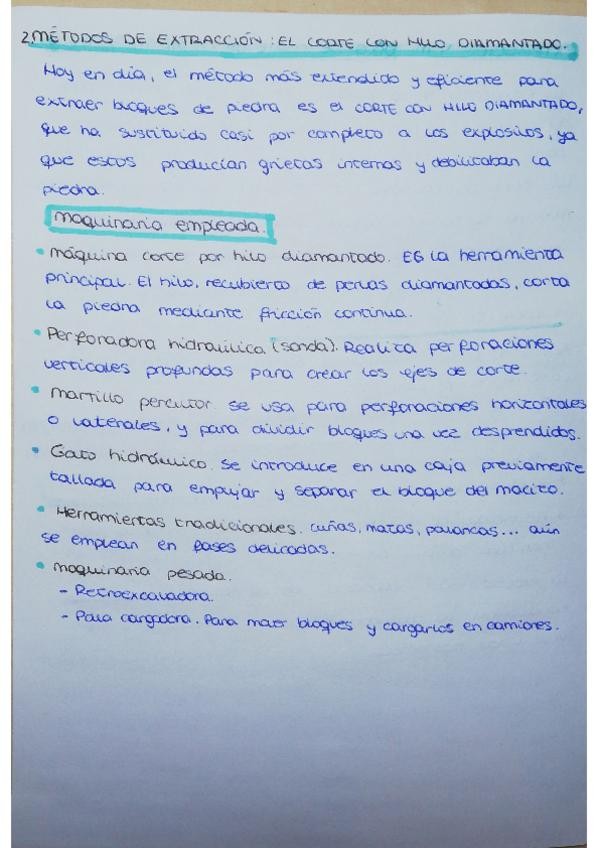 2.MÉTODOS DE EXTRACCIÓN: EL CORTE CON HILO DIAMANTADO.
Hoy en día, el método más extendido y eficiente para
extraer bloques de piedra es el CORTE CON HILO DIAMANTADO,
que ha sustituido casi por completo a los explosivos, ya
que estos producían grietas internas y debilitaban la
piedra.
maquinaria empleada.
• máquina corte por hilo diamantado. Es la herramienta
principal. El hilo, recubierto de perlas diamantadas, corta
la piedra mediante fricción continua.
• Perforadora hidráulica (sonda). Realiza perforaciones
verticales profundas para crear los ejes de corte.
• Martillo percutor. se usa para perforaciones horizontales
o laterales, y para dividir bloques una vez desprendidos.
• Gato hidráulico. se introduce en una caja previamente
tallada para empujar y separar el bloque del macizo.
• Herramientas tradicionales. cuñas, mazas, palancas... aún
se emplean en fases delicadas.
• maquinaria pesada.
- Retroexcavadora.
- Pala cargadora. Para mover bloques y cargarlos en camiones.